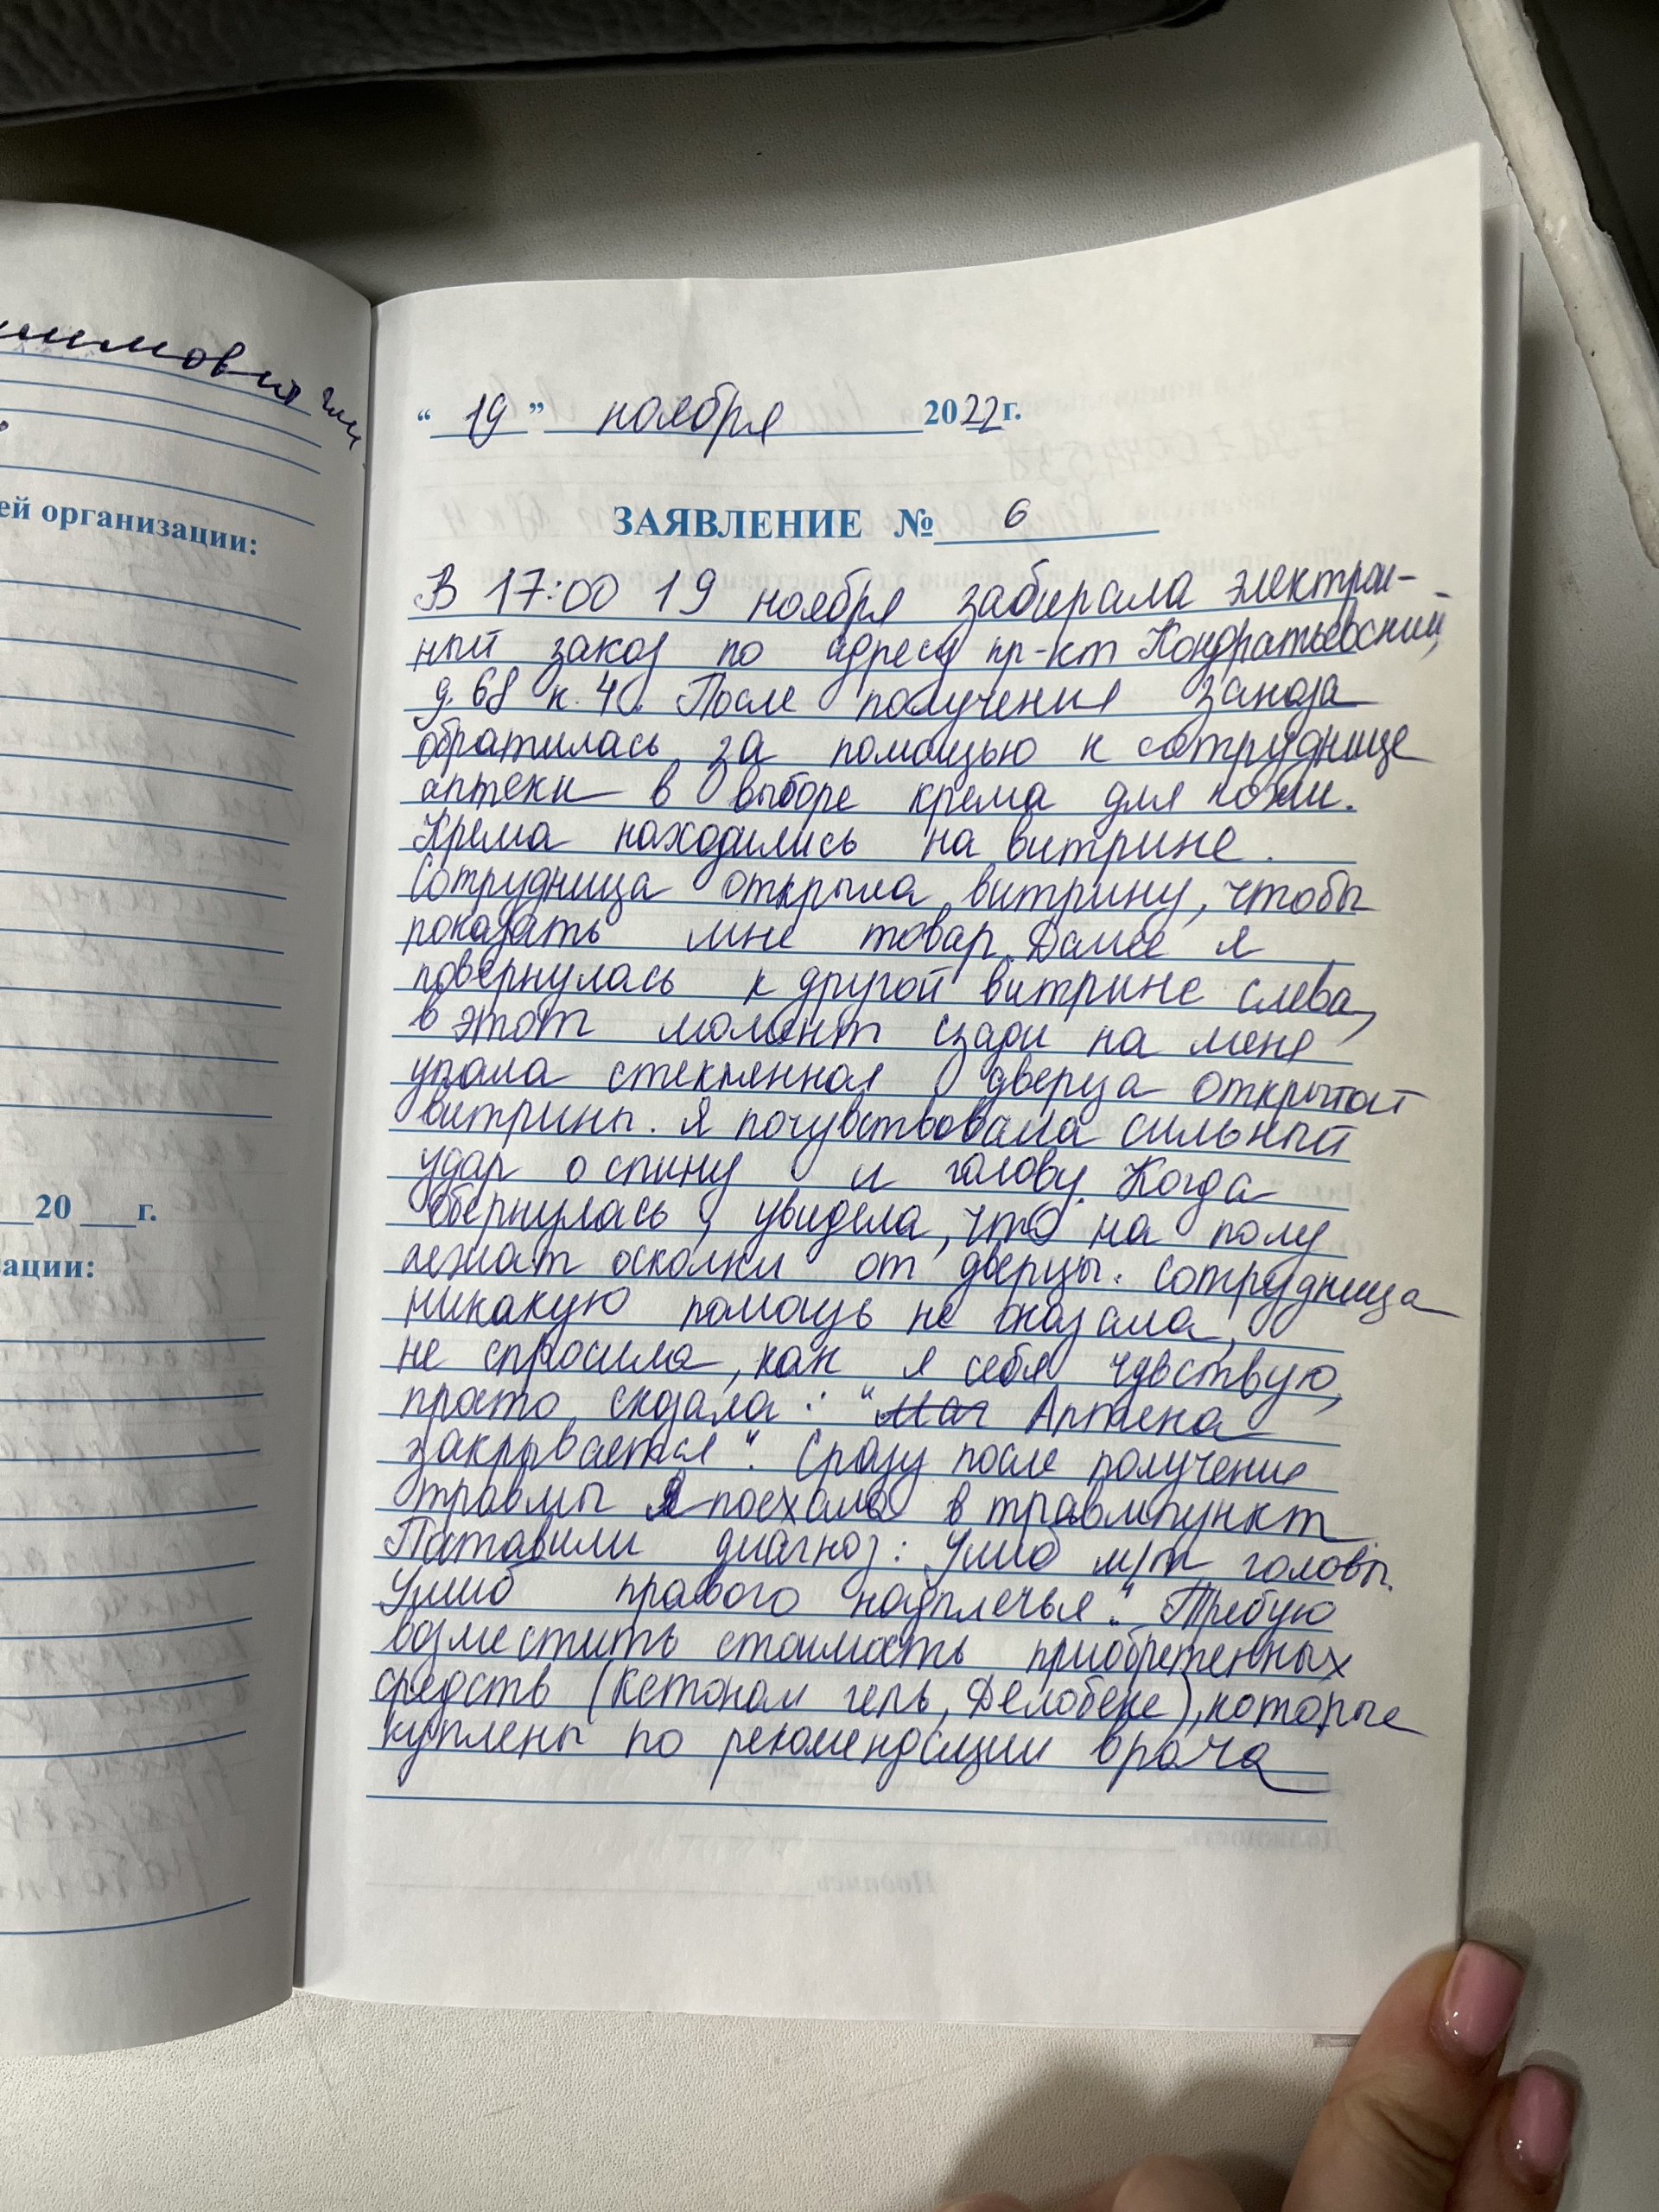 ей организации:
20 г.
ации:
“ 19 ” ноября 2022 г.
ЗАЯВЛЕНИЕ № 6
В 17:00 19 ноября забирала электрон-
ный заказ по адресу пр-кт Кондратьевский,
д. 68 к. 4. После получения заказа
обратилась за помощью к сотруднице
аптеки в выборе крема для кожи.
Крема находились на витрине.
Сотрудница открыла витрину, чтобы
показать мне товар. Далее я
повернулась к другой витрине слева,
в этот момент сзади на меня
упала стеклянная дверца открытой
витрины. Я почувствовала сильный
удар о спину и голову. Когда
обернулась, увидела, что на полу
лежат осколки от дверцы. Сотрудница
никакую помощь не оказала,
не спросила, как я себя чувствую,
просто сказала: “Маг Аптека
закрывается". Сразу после получения
травмы я поехала в травмпункт
Поставили диагноз: Ушиб м/т головы.
Ушиб правого надплечья." Требую
возместить стоимость приобретенных
средств (Кетонал гель, Делобене), которые
куплены по рекомендации врача
Должность
Подпись